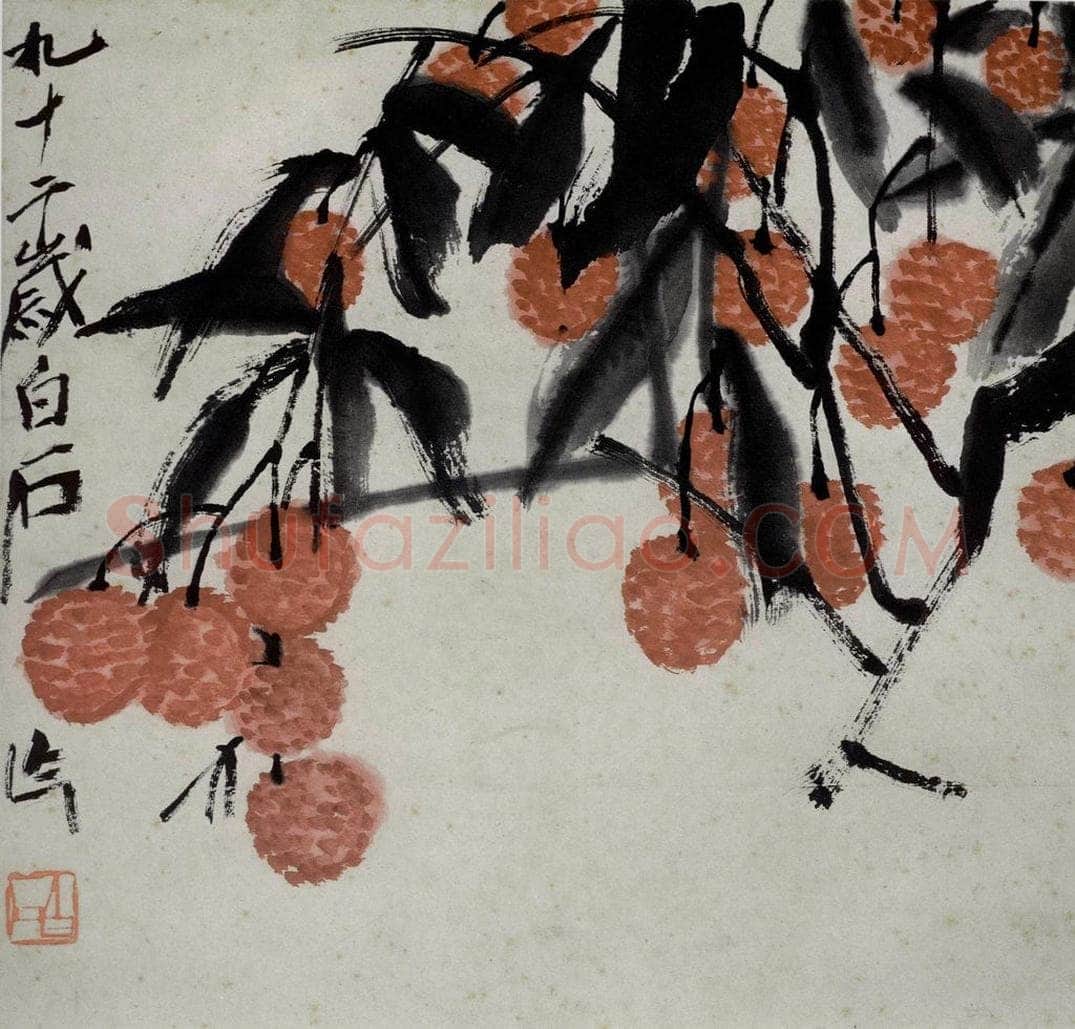 九十二歲白石
Shufaziliao.COM